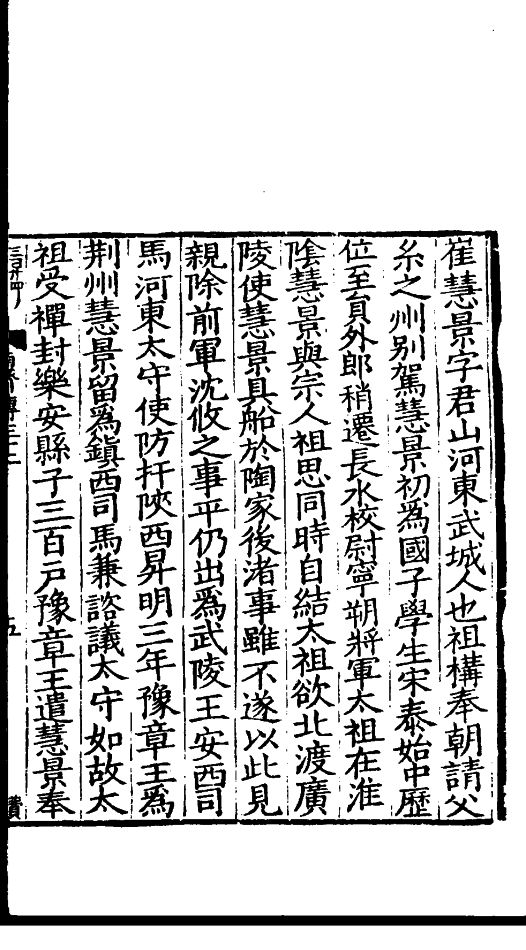 崔慧景字君山河東武城人也祖構奉朝請父
系之州别駕慧景初為國子學生宋泰始中歷
位至員外郎稍遷長水校尉寧朔將軍太祖在淮
陰慧景與宗人祖思同時自結太祖欲北渡廣
陵使慧景具船於陶家後渚事雖不遂以此見
親除前軍沈攸之事平仍出為武陵王安西司
馬河東太守使防扞陜西昇明三年豫章王為
荆州慧景留為鎮西司馬兼諮議太守如故太
祖受禪封樂安縣子三百户豫章王遣慧景奉
五